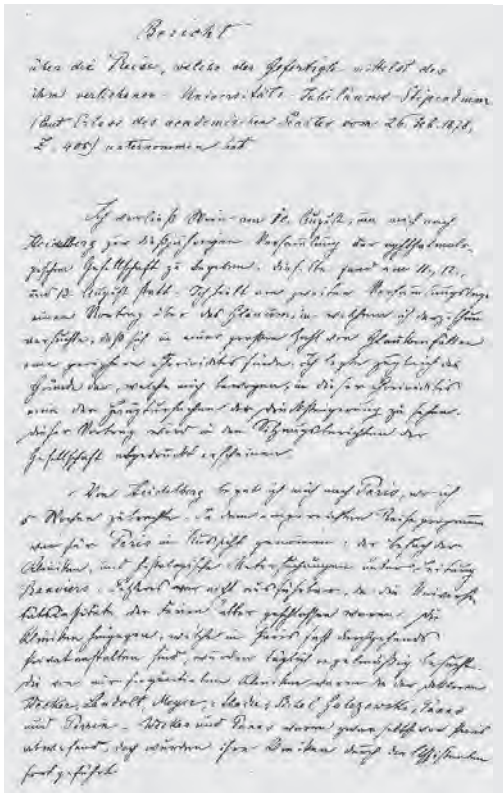 Bericht
über die Reise, welche der Gefertigte mittelst des
ihm verliehenen Universitäts-Jubiläums-Stipendiums
(laut Erlass des academischen Senates vom 26. Feb. 1878,
Z. 405) unternommen hat
Ich verließ Wien am 10. August, um mich nach
Heidelberg zur dießjährigen Versammlung der ophthalmolo-
gischen Gesellschaft zu begeben. Dieselbe fand am 11., 12.,
und 13. August statt. Ich hielt am zweiten Versammlungstage
einen Vortrag über das Glaucom, in welchem ich darzuthun
versuchte, daß sich in einer großen Zahl von Glaukomfällen
eine periphere Chorioiditis finde. Ich legte zugleich die
Gründe dar, welche mich bewegen, in dieser Chorioiditis
eine der Hauptursachen der Drucksteigerung zu sehen.
Dieser Vortrag wird in den Sitzungsberichten der
Gesellschaft abgedruckt erscheinen.
Von Heidelberg begab ich mich nach Paris, wo ich
5 Wochen zubrachte. In dem eingereichten Reiseprogramm
war für Paris in Aussicht genommen: der Besuch der
Kliniken, und histologische Untersuchungen unter Leitung
Ranviers. Letzteres war nicht ausführbar, da die Universi-
tätsinstitute der Ferien halber geschlossen waren. Die
Kliniken hingegen, welche in Paris fast durchgehends
Privatanstalten sind, wurden täglich regelmäßig besucht.
Die von mir frequentirten Kliniken waren die der Doktoren
Wecker, Landolt, Meyer, Sichel, Galezowski, Panas
und Perrin. Wecker und Panas waren zwar selbst von Paris
abwesend, doch wurden ihre Kliniken durch die Assistenten
fortgeführt.